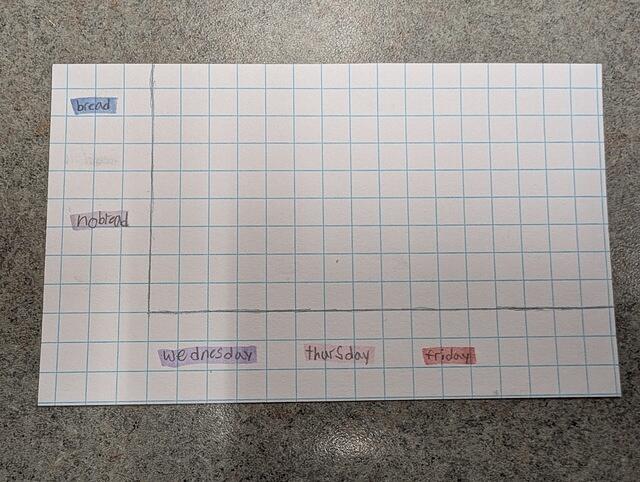 bread
nobread
wednesday thursday friday